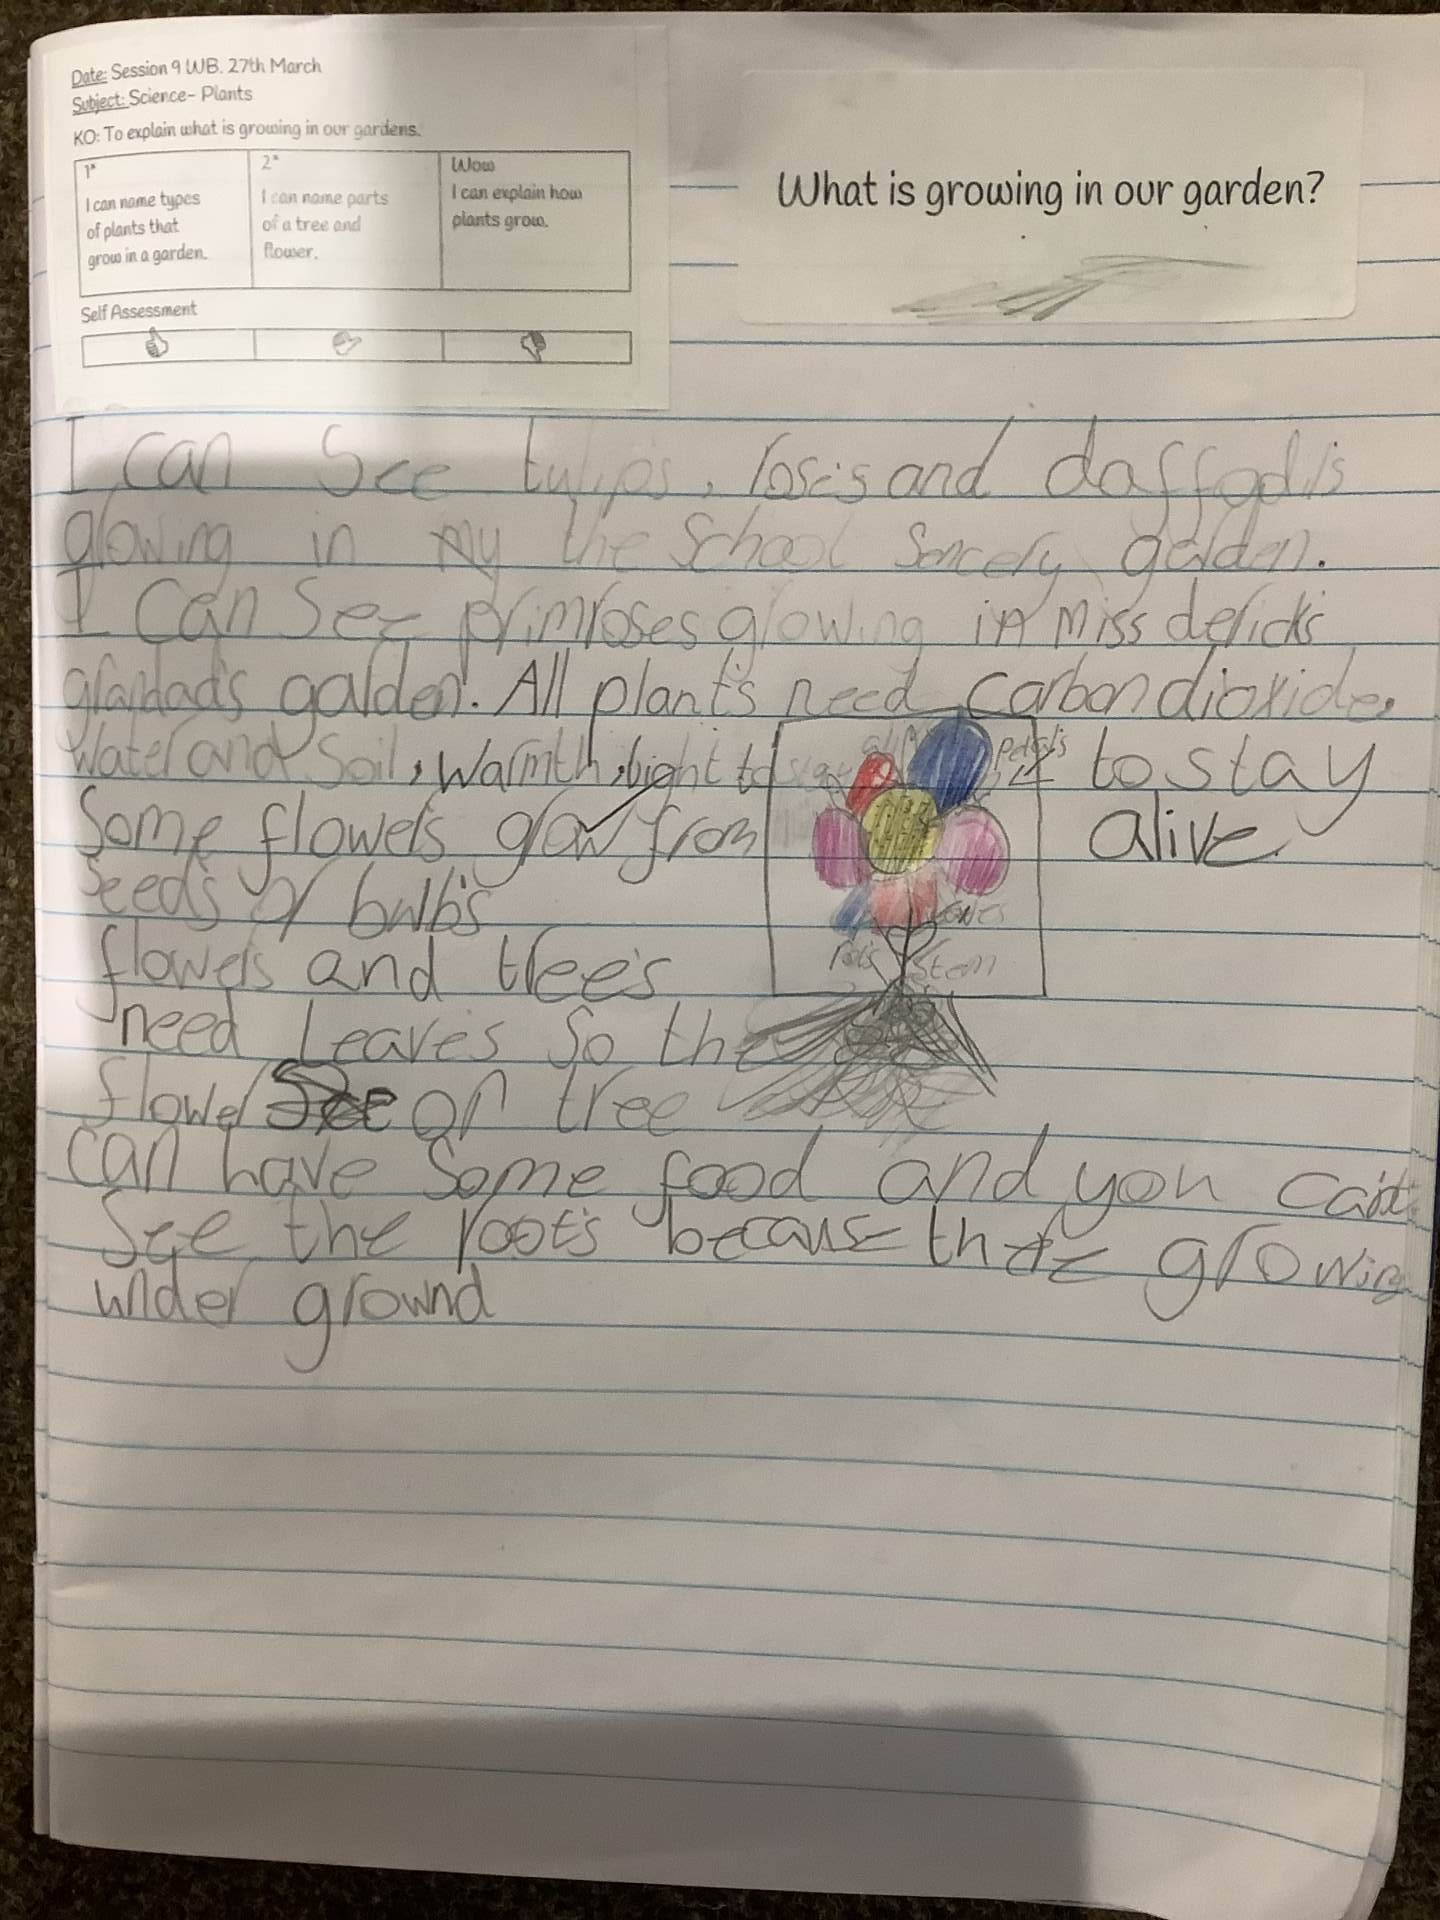 Date: Session 9 WB. 27th March
Subject: Science- Plants
KO: To explain what is growing in our gardens.
1*
I can name types
of plants that
grow in a garden.
2*
I can name parts
of a tree and
flower.
Wow
I can explain how
plants grow.
Self Assessment
What is growing in our garden?
I can See tulips, rosis and daffodils
growing in my the School Sencery garden.
I can See primroses growing in Miss dericks
grandad's garden. All plant's need carbondioxide,
Water and Soil, warmth, light to stay
to stay
alive
Some flower's grow from
Seed's or bulb's
flowers and tree's
need Leaves So the
flower or tree
can have Some food and you can't
See the root's because there growing
under ground
petal's
Stem